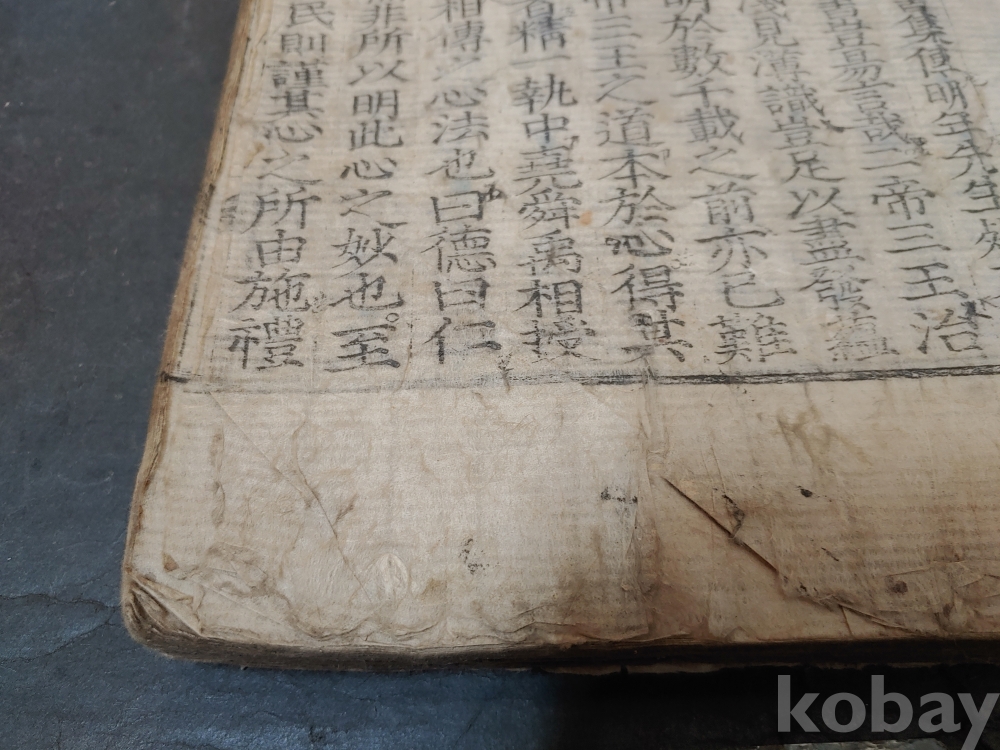 集傳明年先生歿
書豈易言哉二帝三王治
淺見薄識豈足以盡發蘊
明於數千載之前亦已難
帝三王之道本於心得其
者精一執中堯舜禹相授
相傳之心法也曰德曰仁
非所以明此心之妙也至
民則謹其心之所由施禮
kobay